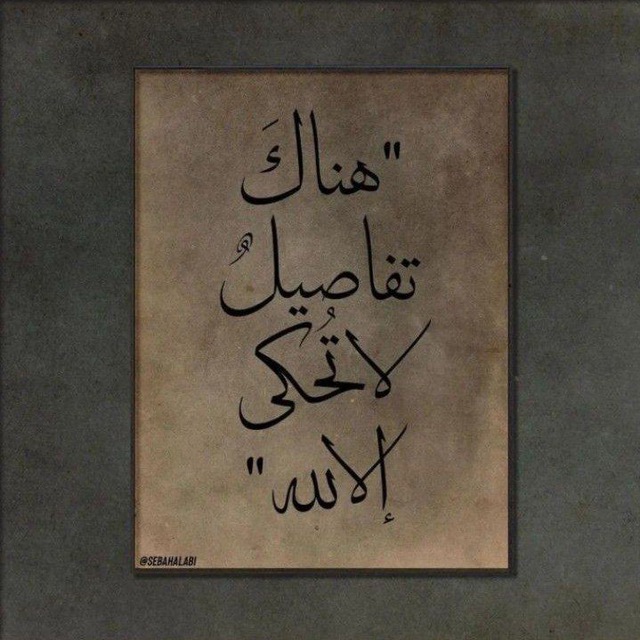 "هناكَ
تفاصيلٌ
لا تُحكى
إلا لله"
@SEBAHALABI